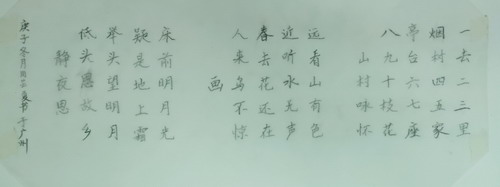 一去二三里
烟村四五家
亭台六七座
八九十枝花
山村咏怀
远看山有色
近听水无声
春去花还在
人来鸟不惊
画
床前明月光
疑是地上霜
举头望明月
低头思故乡
静夜思
庚子冬月 书于广州